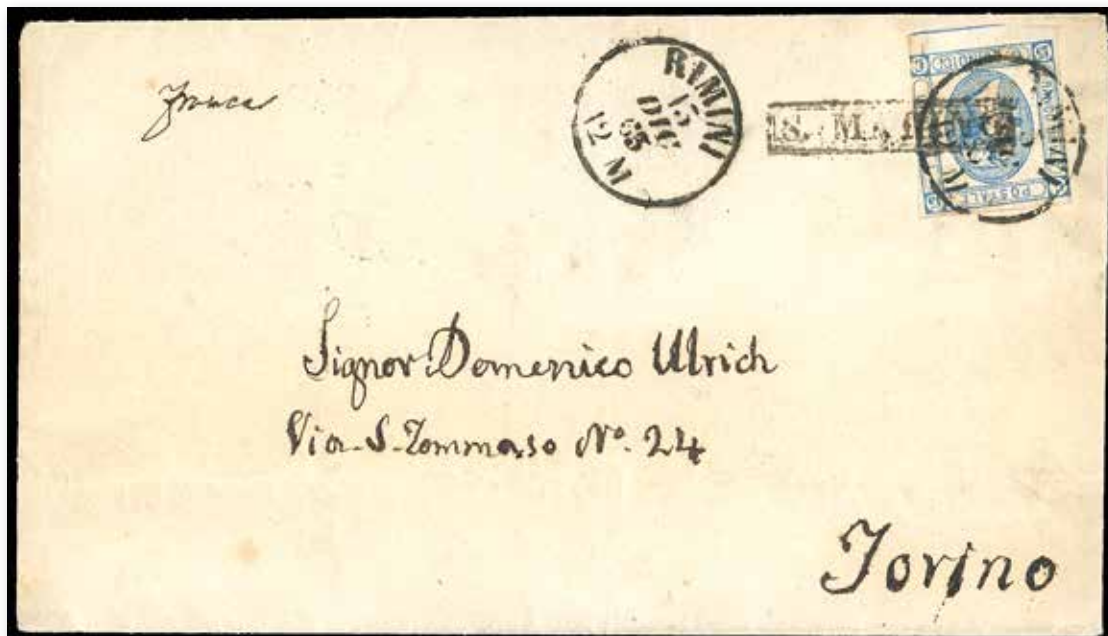 franca
RIMINI
15
DIC
63
12 M
S. MARINO
POSTALE
Signor Domenico Ulrich
Via S. Tommaso Nº. 24
Torino